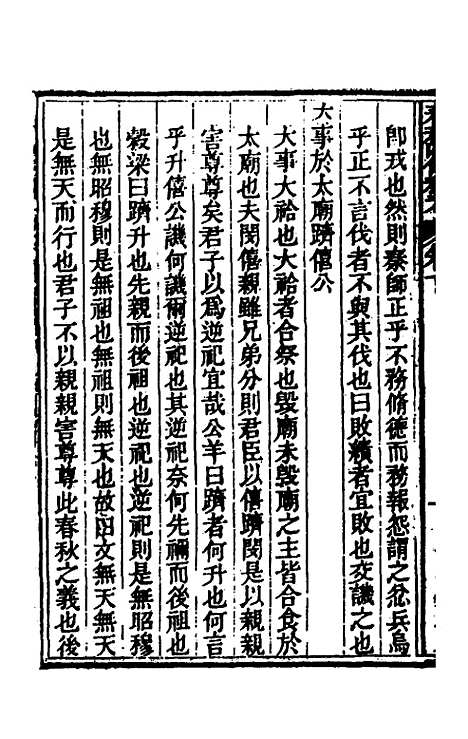 郎戎也然則秦師正乎不務脩德而務報怨謂之忿兵烏
乎正不言伐者不與其伐也曰敗績者宜敗也交譏之也
大事於太廟躋僖公
大事大祫也大祫者合祭也毀廟未毀廟之主皆合食於
太廟也夫閔僖親雖兄弟分則君臣以僖躋閔是以親親
害尊尊矣君子以爲逆祀宜哉公羊曰躋者何升也何言
乎升僖公譏何譏爾逆祀也其逆祀奈何先禰而後祖也
穀梁曰躋升也先親而後祖也逆祀也逆祀則是無昭穆
也無昭穆則是無祖也無祖則無天也故曰文無天無天
是無天而行也君子不以親親害尊尊此春秋之義也後